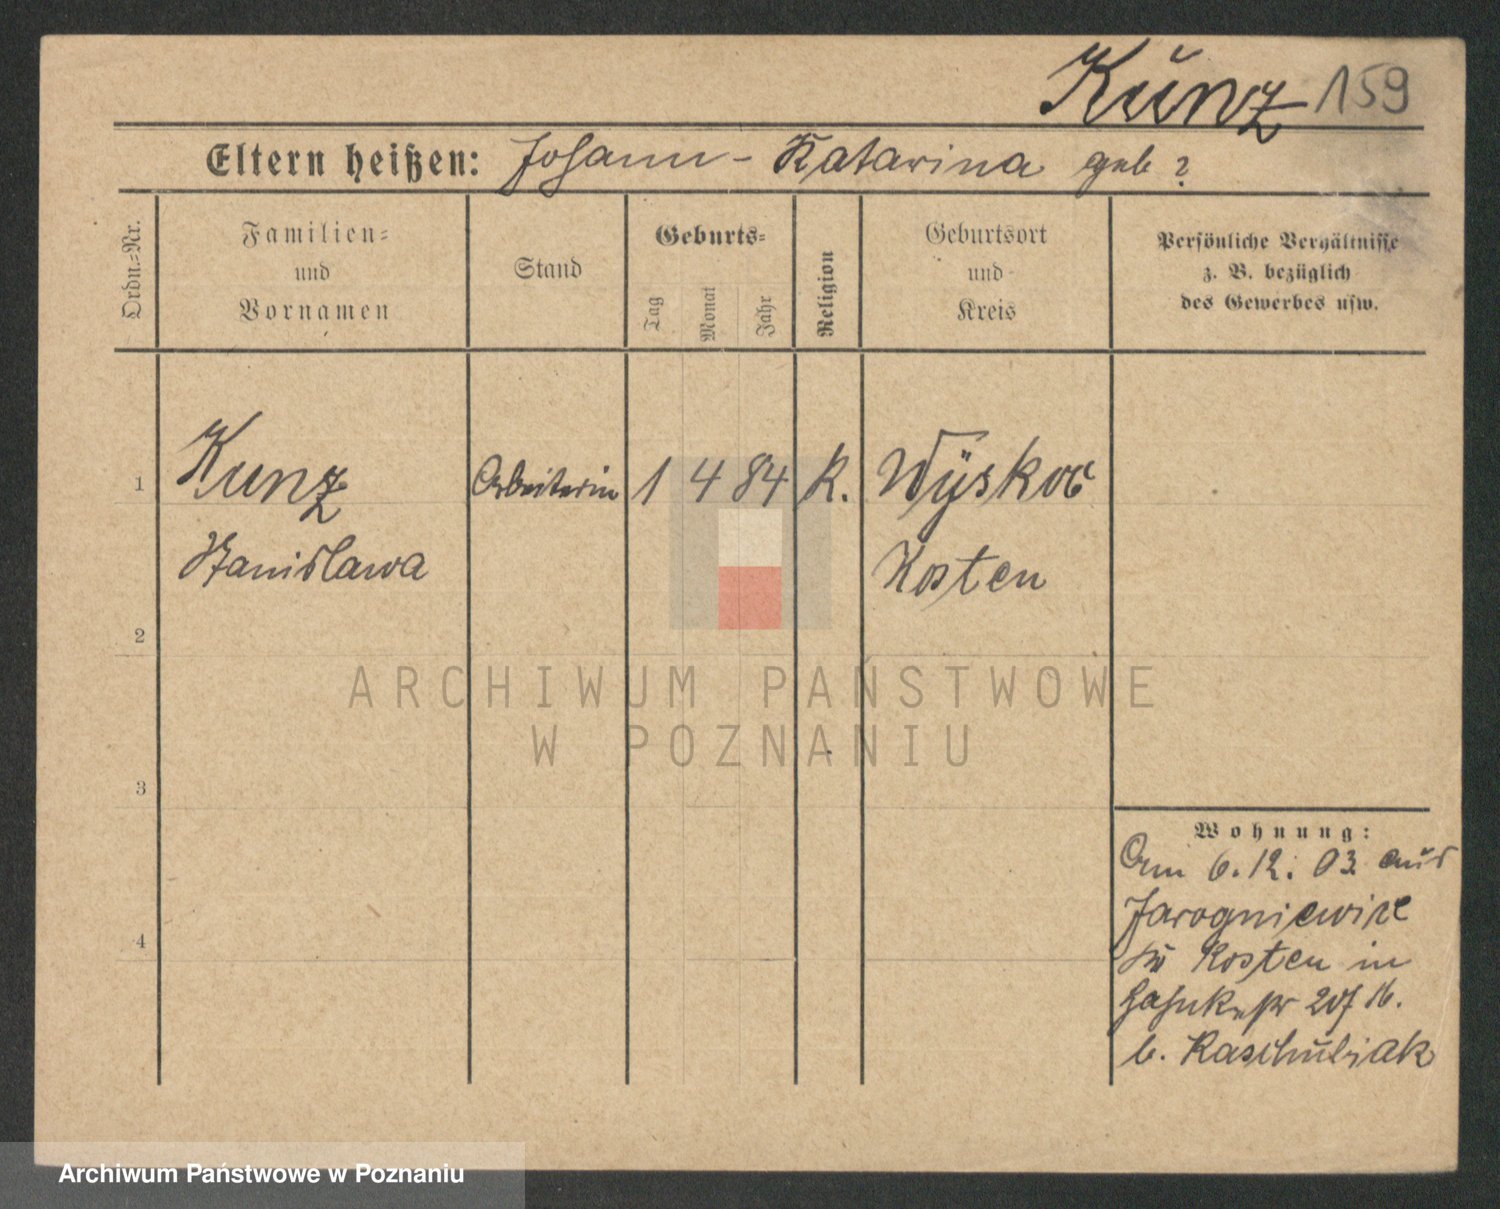 Kunz 159
Eltern heißen: Johann - Katarina geb ?
Ordn.-Nr.
Familien-
und
Vornamen
Stand
Geburts-
Tag
Monat
Jahr
Religion
Geburtsort
und
Kreis
Persönliche Verhältnisse
z. B. bezüglich
des Gewerbes usw.
1 Kunz Arbeiterin 1 4 84 K. Wyskoc
Stanislawa Kosten
2
3
4
Wohnung:
Am 6.12.03 aus
Jarogniewice
Kr Kosten in
20
b. Kaschubiak
ARCHIWUM PAŃSTWOWE
W POZNANIU
Archiwum Państwowe w Poznaniu